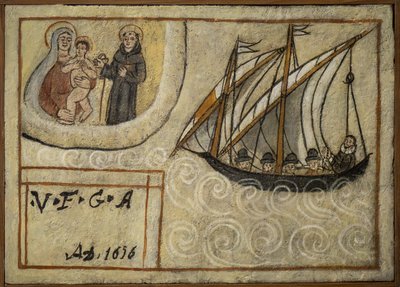 ·V·F·G·A
AD. 1696